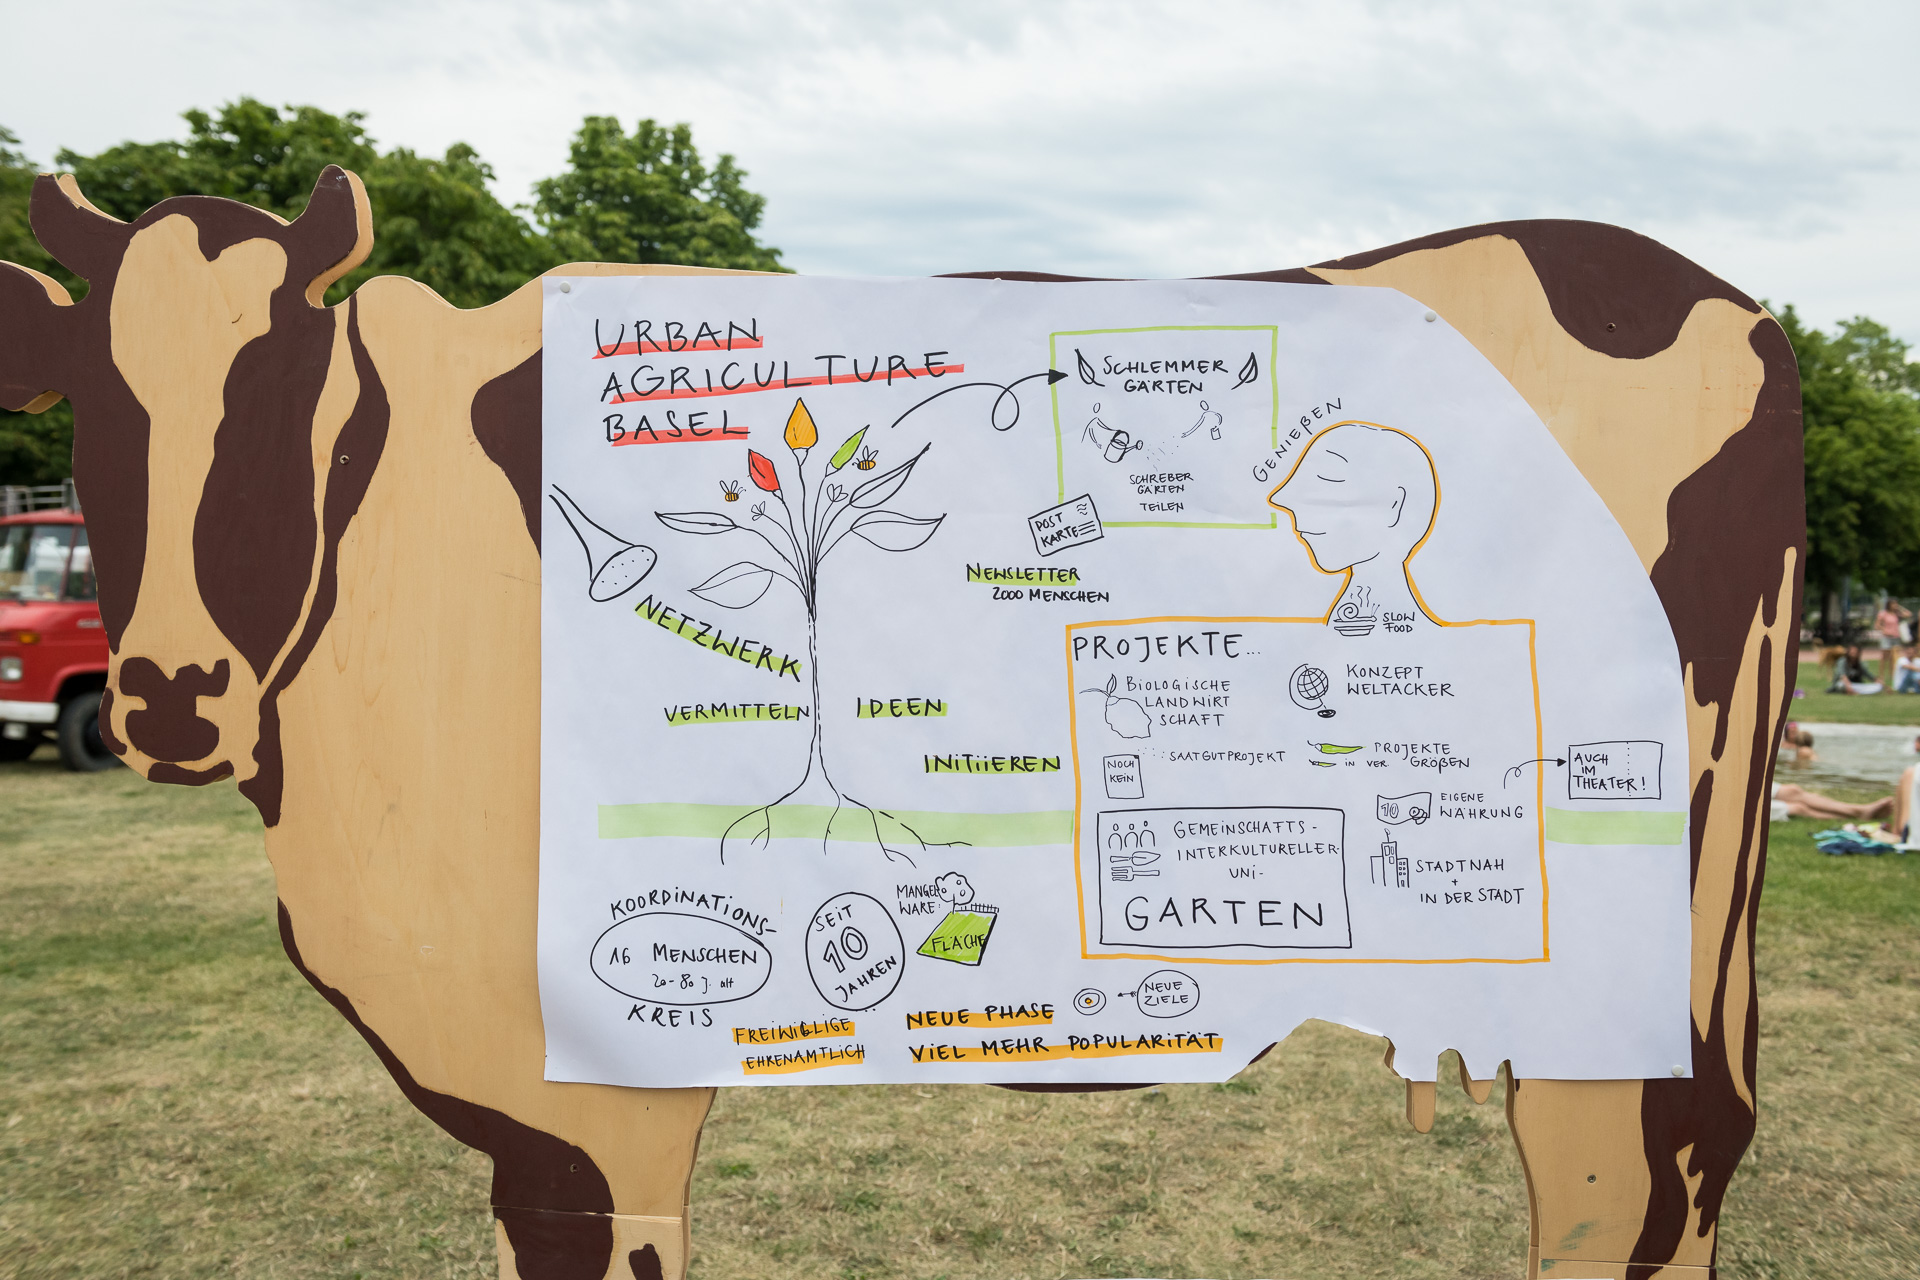 URBAN
AGRICULTURE
BASEL
SCHLEMMER
GÄRTEN
SCHREBER
GÄRTEN
TEILEN
POST
KARTE
NEWSLETTER
2000 MENSCHEN
GENIEßEN
SLOW
FOOD
NETZWERK
VERMITTELN
IDEEN
INITIIEREN
PROJEKTE...
BIOLOGISCHE
LANDWIRT
SCHAFT
KONZEPT
WELTACKER
NOCH
KEIN
SAATGUTPROJEKT
PROJEKTE
IN VER. GRÖßEN
10
EIGENE
WÄHRUNG
AUCH
IM
THEATER!
GEMEINSCHAFTS-
INTERKULTURELLER-
UNI-
GARTEN
STADTNAH
+
IN DER STADT
KOORDINATIONS-
16 MENSCHEN
20-80 J. alt
KREIS
SEIT
10
JAHREN
MANGEL
WARE:
FLÄCHE
FREIWILLIGE
EHRENAMTLICH
NEUE PHASE
VIEL MEHR POPULARITÄT
NEUE
ZIELE